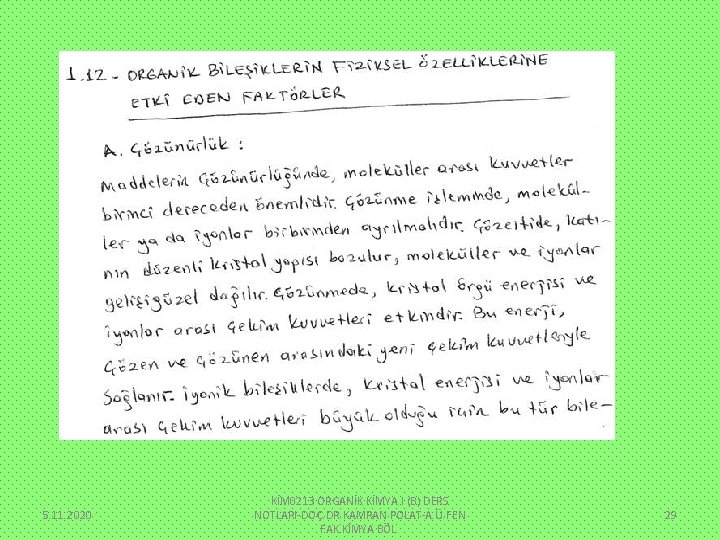 1.12 - ORGANİK BİLEŞİKLERİN FİZİKSEL ÖZELLİKLERİNE
ETKİ EDEN FAKTÖRLER
A. Çözünürlük :
Maddelerin Çözünürlüğünde, moleküller arası kuvvetler
birinci dereceden önemlidir. Çözünme işleminde, molekül-
ler ya da iyonlar birbirinden ayrılmalıdır. Çözeltide, katı-
nın düzenli kristal yapısı bozulur, moleküller ve iyonlar
gelişigüzel dağılır. Çözünmede, kristal örgü enerjisi ve
iyonlar arası çekim kuvvetleri etkindir. Bu enerji,
çözen ve çözünen arasındaki yeni çekim kuvvetleriyle
sağlanır. İyonik bileşiklerde, kristal enerjisi ve iyonlar
arası çekim kuvvetleri büyük olduğu için bu tür bile-
5.11.2020
KİM0213 ORGANİK KİMYA I (B) DERS
NOTLARI-DOÇ.DR.KAMRAN POLAT-A.Ü.FEN
FAK.KİMYA BÖL
29